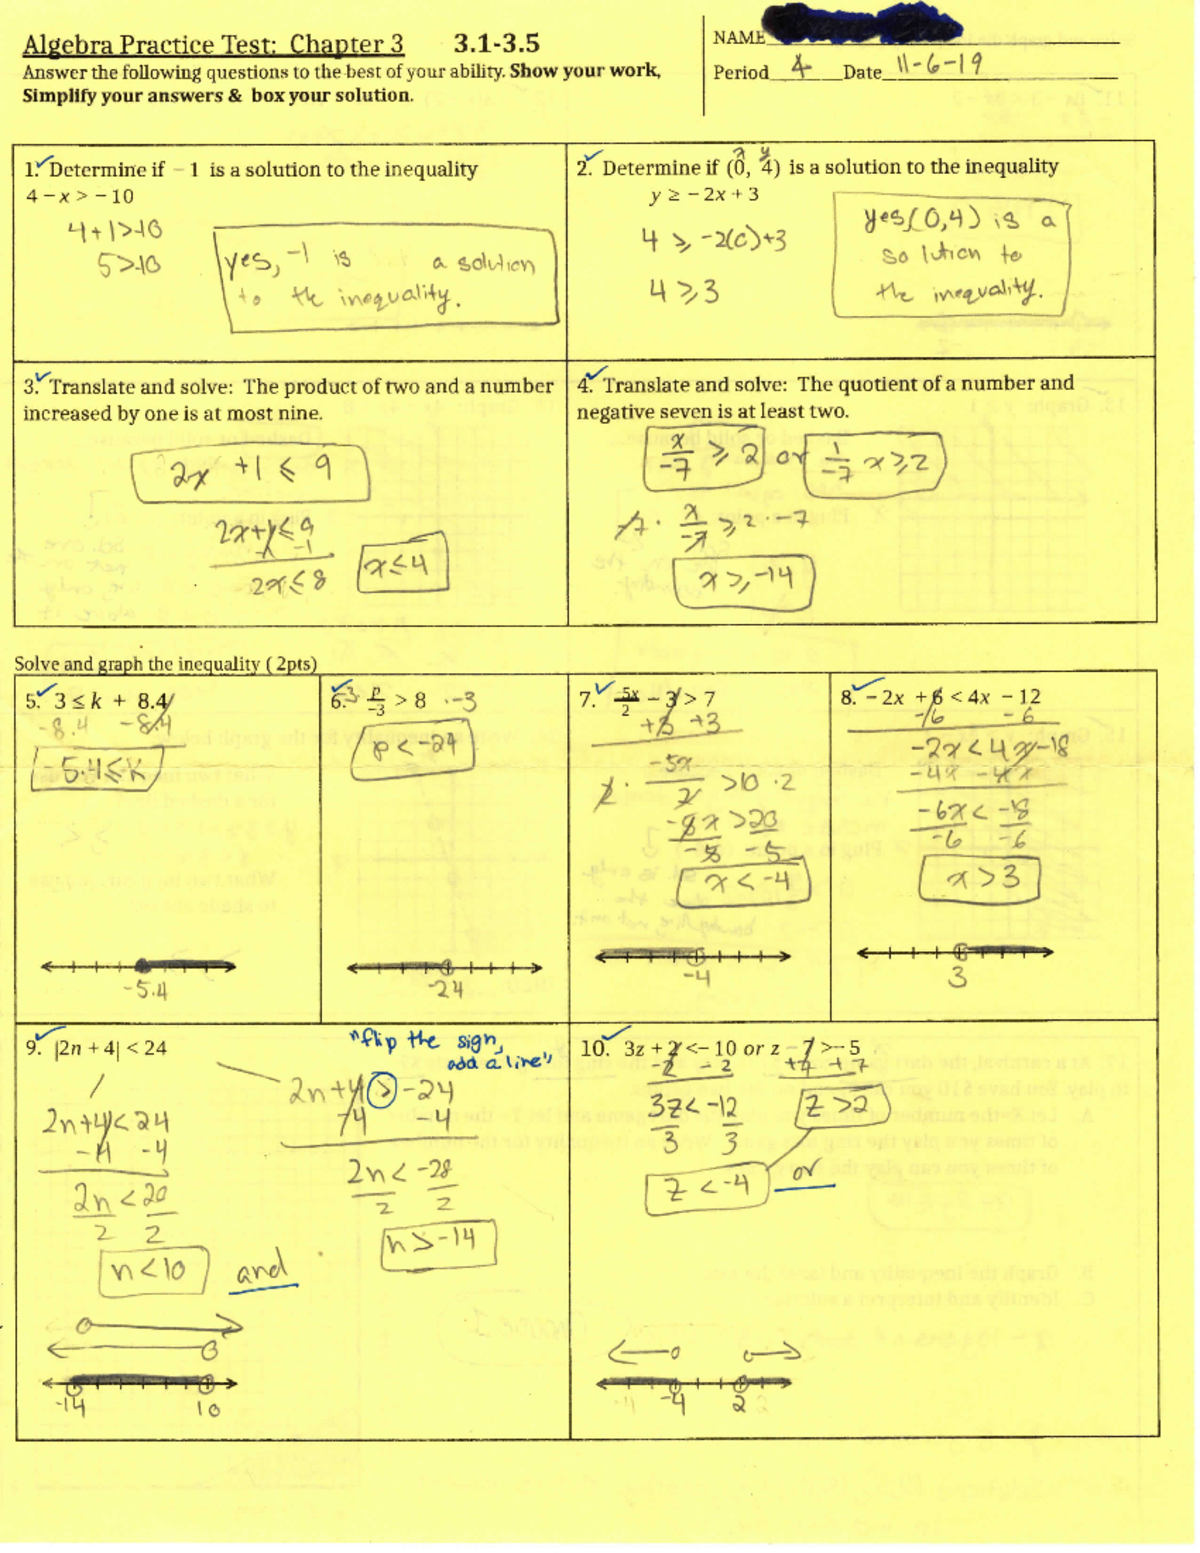 Algebra Practice Test: Chapter 3 3.1-3.5
Answer the following questions to the best of your ability. Show your work,
Simplify your answers & box your solution.
NAME
Period 4 Date 11-6-19
1. Determine if – 1 is a solution to the inequality
4 – x > – 10
4+1>-10
5>-10
yes, -1 is a solution
to the inequality.
2. Determine if (0, 4) is a solution to the inequality
x y
y ≥ – 2x + 3
4 ≥ -2(0)+3
4 ≥ 3
yes (0,4) is a
solution to
the inequality.
3. Translate and solve: The product of two and a number
increased by one is at most nine.
2x +1 ≤ 9
2x+1 ≤ 9
-1 -1
2x ≤ 8
x ≤ 4
4. Translate and solve: The quotient of a number and
negative seven is at least two.
x/-7 ≥ 2 or 1/-7 x ≥ 2
-7 · x/-7 ≥ 2 · -7
x ≥ -14
Solve and graph the inequality ( 2pts)
5. 3 ≤ k + 8.4
-8.4 -8.4
-5.4 ≤ k
-5.4
6. p/-3 > 8 · -3
-3
p < -24
-24
7. -5x/2 – 3 > 7
+3 +3
2 · -5x/2 > 10 · 2
-5x > 20
-5 -5
x < -4
-4
8. – 2x + 6 < 4x – 12
-6 -6
-2x < 4x -18
-4x -4x
-6x < -18
-6 -6
x > 3
3
9. |2n + 4| < 24
"flip the sign,
add a line"
2n+4 < 24
-4 -4
2n < 20
2 2
n < 10
and
2n+4 > -24
-4 -4
2n < -28
2 2
n > -14
-14 10
10. 3z + 2 < – 10 or z – 7 > – 5
-2 -2 +7 +7
3z < -12
3 3
z > 2
z < -4
or
-4 2